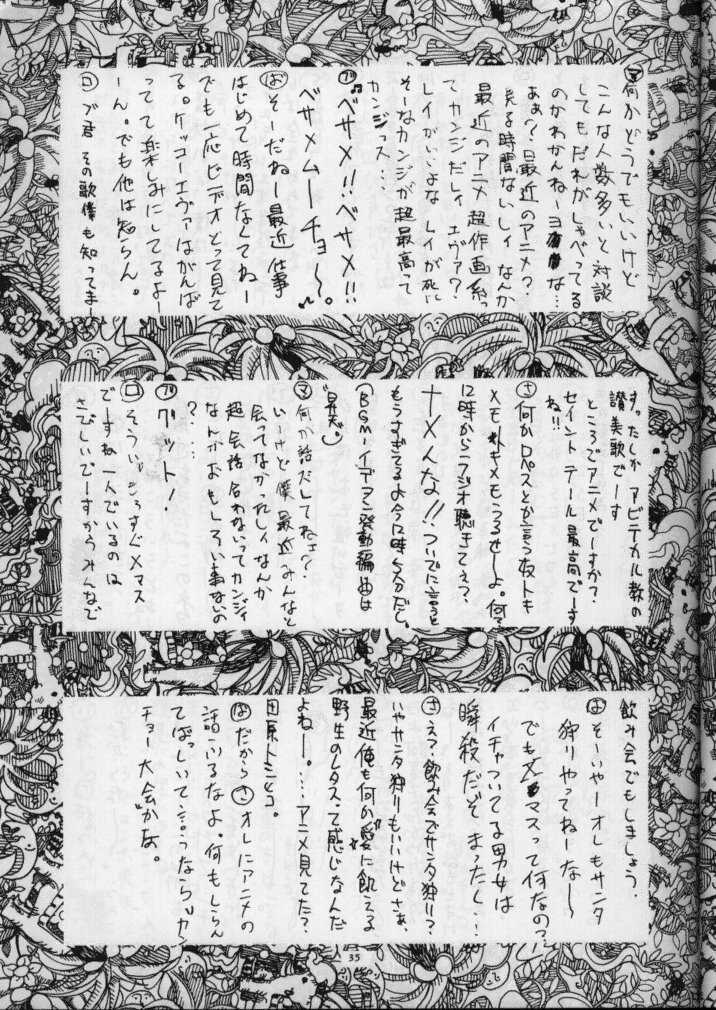 ㋮何かどうでもいいけど
こんな人数多いと対談
してもだれがしゃべってる
のかわかんねーヨな…
あぁ?最近のアニメ?
見る時間ないしィ なんか
最近のアニメ 超作画系
てカンジだしィ エヴァ?
レイがいいよな レイが死に
そーなカンジが超最高て
カンジっス…
ベサメ!!ベサメ!!
ベサメムーチョ〜。
㋩゛そーだねー最近仕事
はじめて時間なくてねー
でも一応ビデオとって見て
る。ケッコーエヴァはがんば
ってて楽しみにしてるよー
ーん。でも他は知らん。
㋺ブ君 その歌僕も知ってまー
すったしか アビテカル教の
讃美歌でーす
ところでアニメでーすか?
セイントテール最高でーす
ね!!
㋚何かDペスとか言う奴トも
メモトキメモうるせーよ。何?
12時からラジオ聴きてぇ?、
ナメんな!!ついでに言うと
もうすぎてるよ今12時5分だし。
(BGM・イデアン発動編曲は
"昇天")
㋮何か話だしてねェ?
いーけど僕最近みんなと
会ってなかったしィ なんか
超会話合わないってカンジィ
なんかおもしろい事ないの
?…
グット!
㋺そういえばもうすぐXマス
でーすね一人でいるのは
さびしいでーすからみんなで
飲み会でもしましょう。
㋩゛そーいやーオレもサンタ
狩りやってねーな〜
でもXマスって何なの?
イチャついてる男女は
瞬殺だぞまったく…!
㋚え?飲み会でサンタ狩り?
いやサンタ狩りもいいけどさぁ、
最近俺も何か愛に飢える
野生のレタスって感じなんだ
よねー。…アニメ見てた?
田原トシヒコ。
㋩゛だから㋚オレにアニメの
話ふるなよ。何もしらん
てばっしいて言うならリカ
チョー大会かな。
35